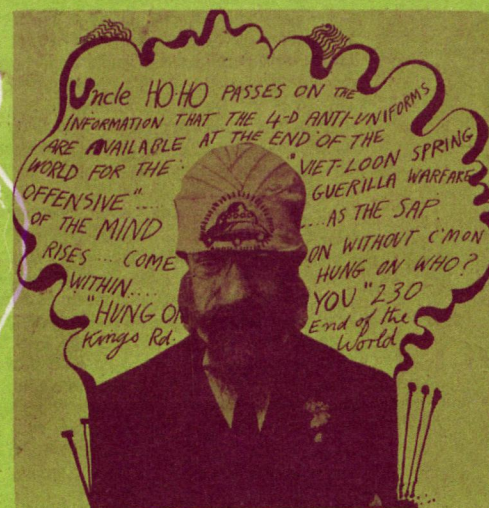 Uncle HO-HO PASSES ON THE
INFORMATION THAT THE 4-D ANTI-UNIFORMS
ARE AVAILABLE AT THE END OF THE
WORLD FOR THE "VIET-LOON SPRING
OFFENSIVE"..... GUERILLA WARFARE
OF THE MIND ....AS THE SAP
RISES... COME ON WITHOUT C'MON
WITHIN.... HUNG ON WHO?
"HUNG ON YOU" 230
Kings Rd. End of the
World